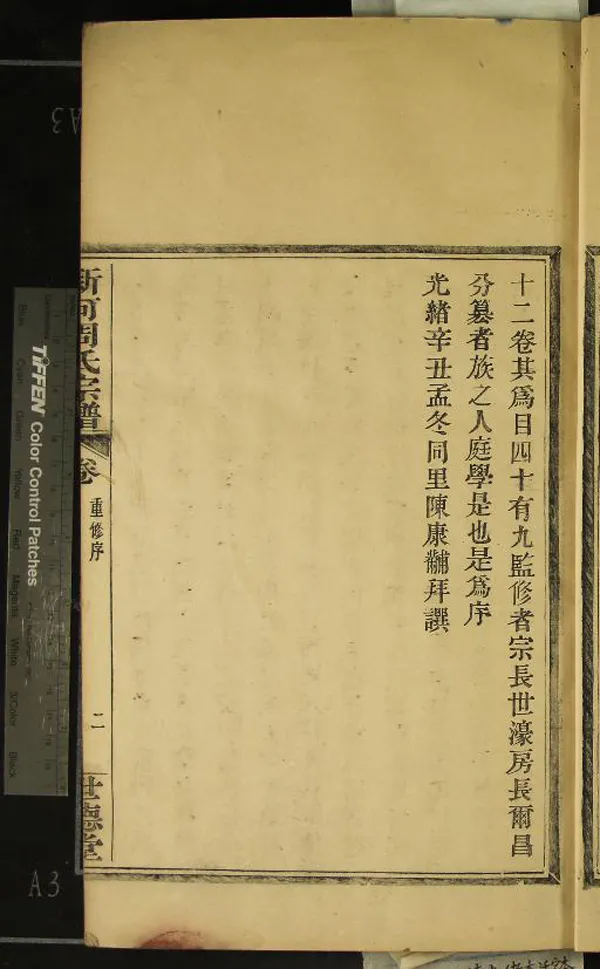 十二卷其爲目四十有九監修者宗長世濠房長爾昌
分纂者族之人庭學是也是爲序
光緒辛丑孟冬同里陳康黼拜譔
新河周氏宗譜
卷
重修序
二
世德堂
TIFFEN Color Control Patches
Blue Cyan Green Yellow Red Magenta White 3/Color Black
A3
A3